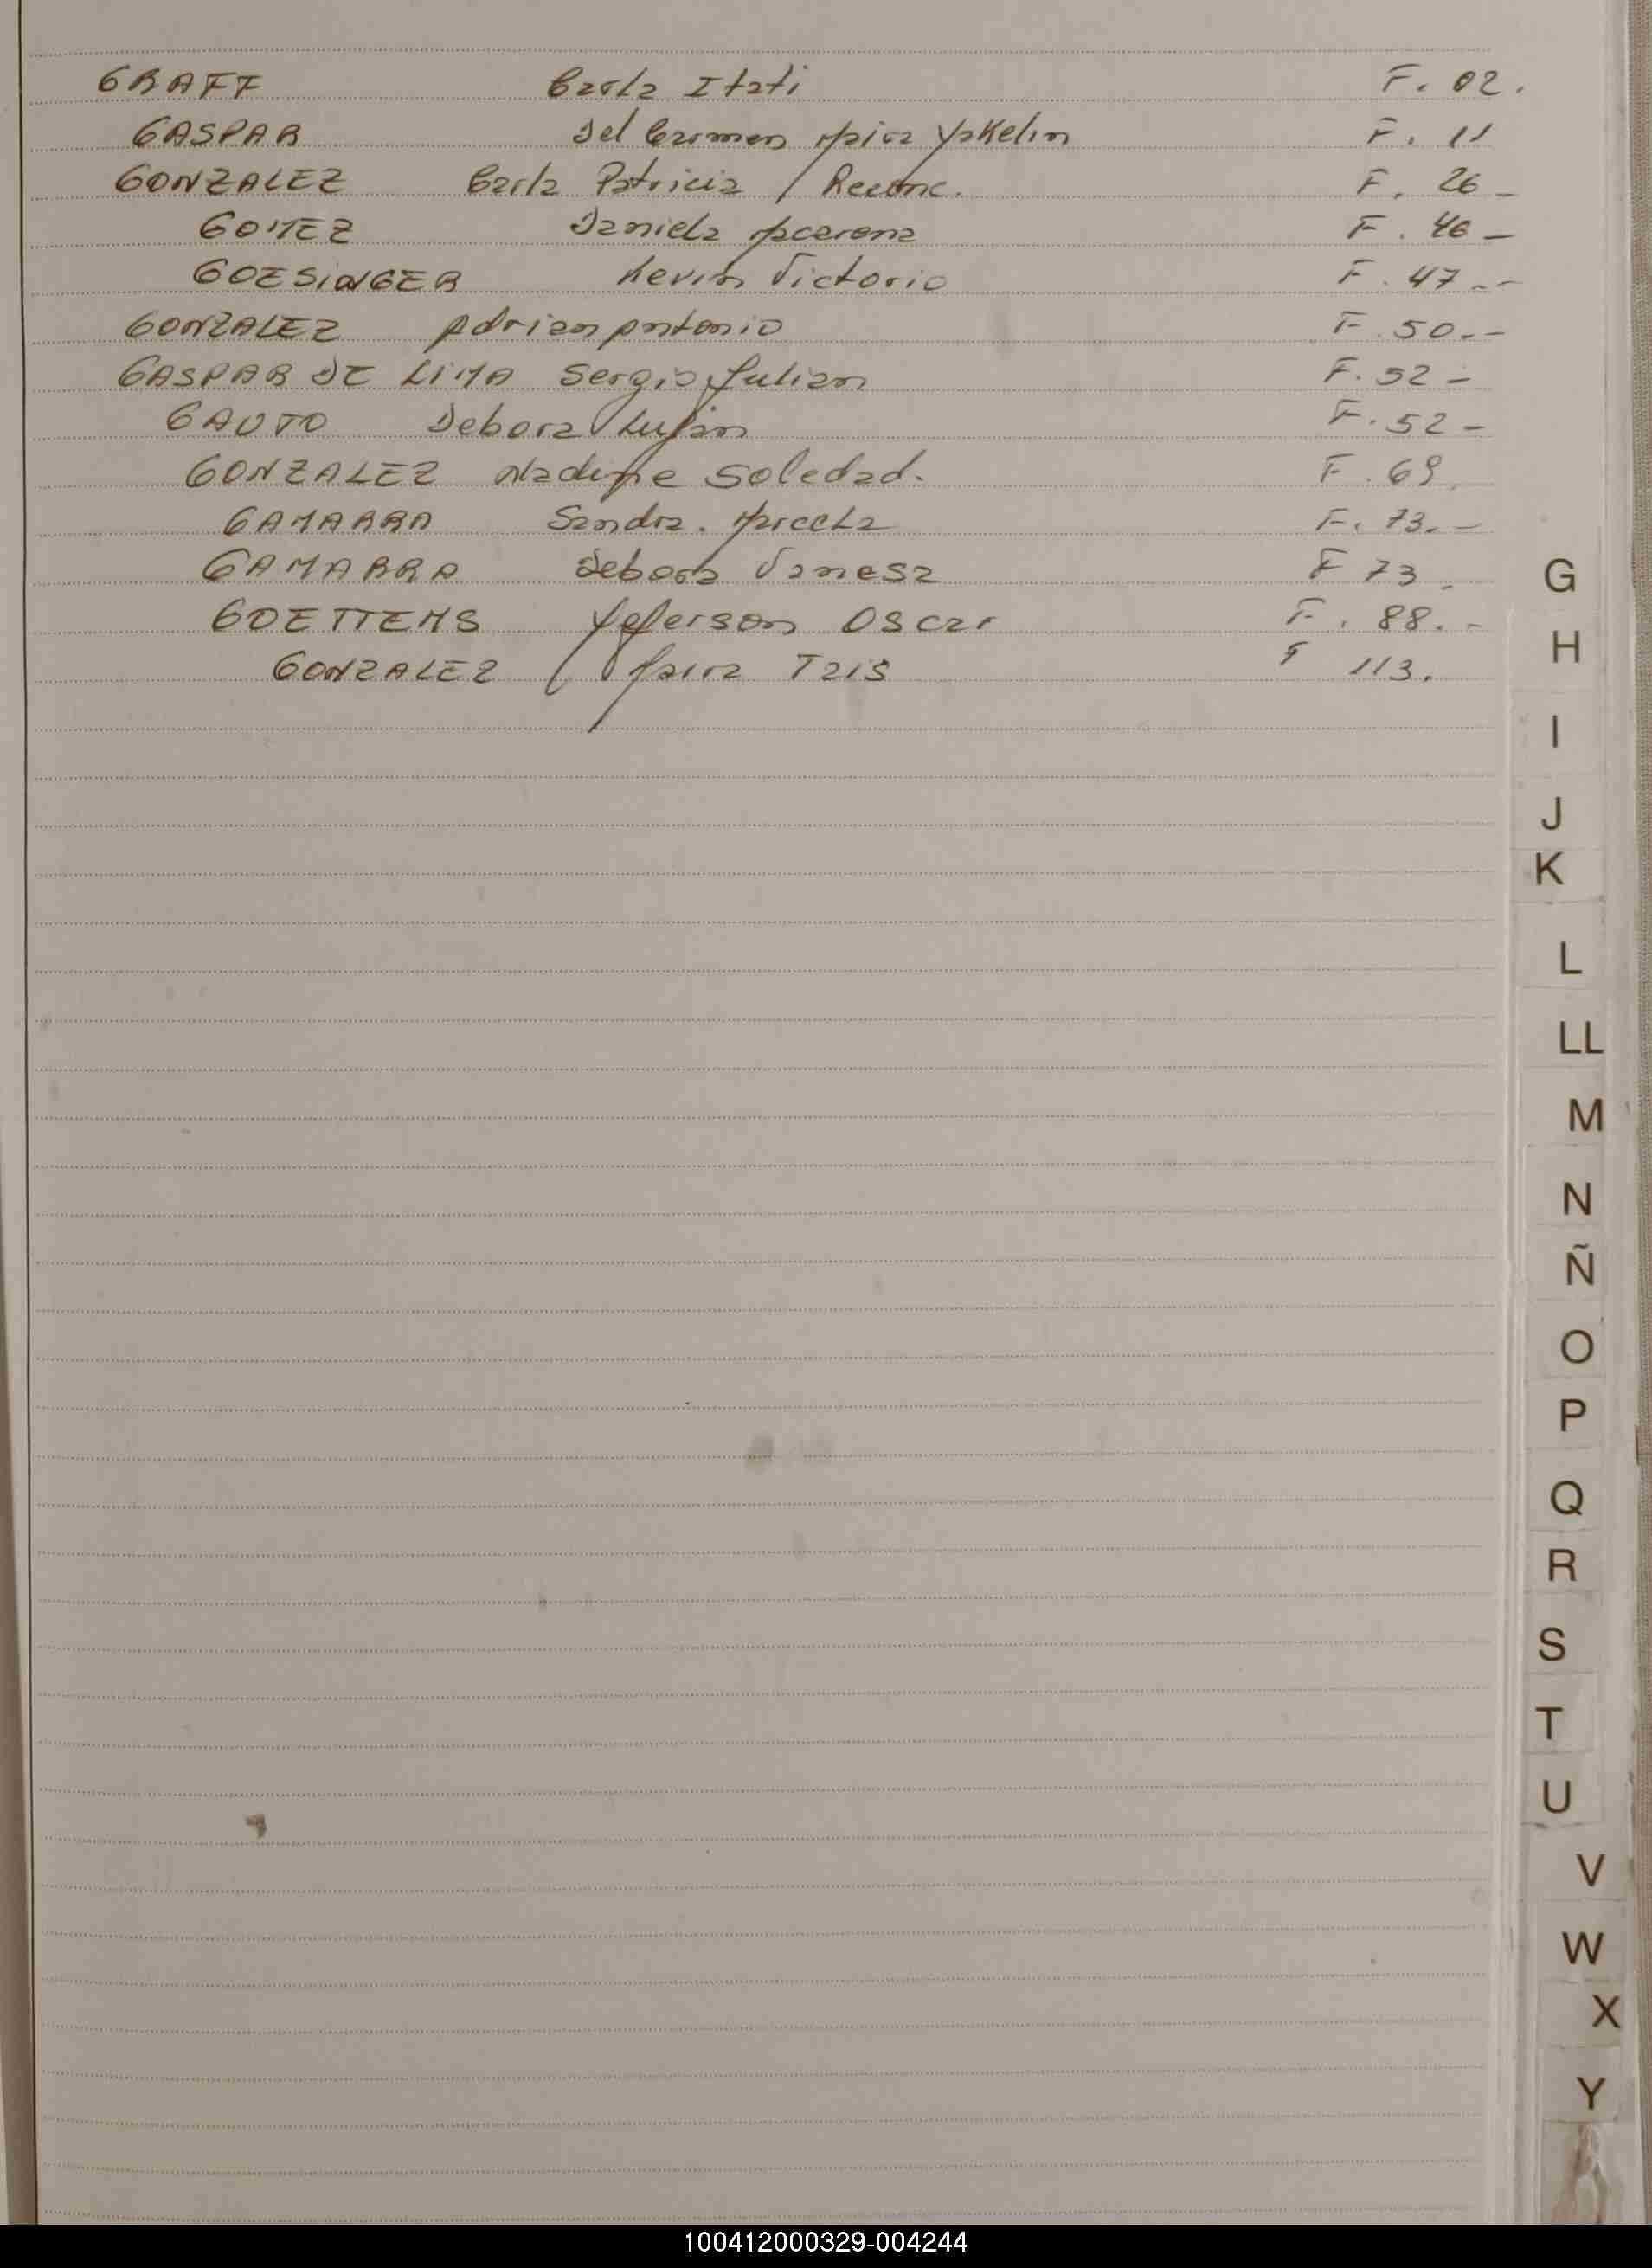 GRAFF Carla Itati F. 02.
GASPAR Del Carmen Maira Yakelin F. 11
GONZALEZ Carla Patricia / Reconc. F. 26 -
GOMEZ Daniela Macarena F. 46 -
GOESINGER Kevin Victorio F. 47.--
GONZALEZ Adrian Antonio F. 50.-
GASPAR DE LIMA Sergio Julian F. 52 -
GAUTO Debora Lujan F. 52 -
GONZALEZ Nadine Soledad. F. 69.
GAMARRA Sandra. Marcela F. 73. -
GAMARRA Debora Vanesa F 73.
GOETTEMS Yeferson Oscar F. 88. -
GONZALEZ Jaira Tais F 113.
G
H
I
J
K
L
LL
M
N
Ñ
O
P
Q
R
S
T
U
V
W
X
Y
100412000329-004244